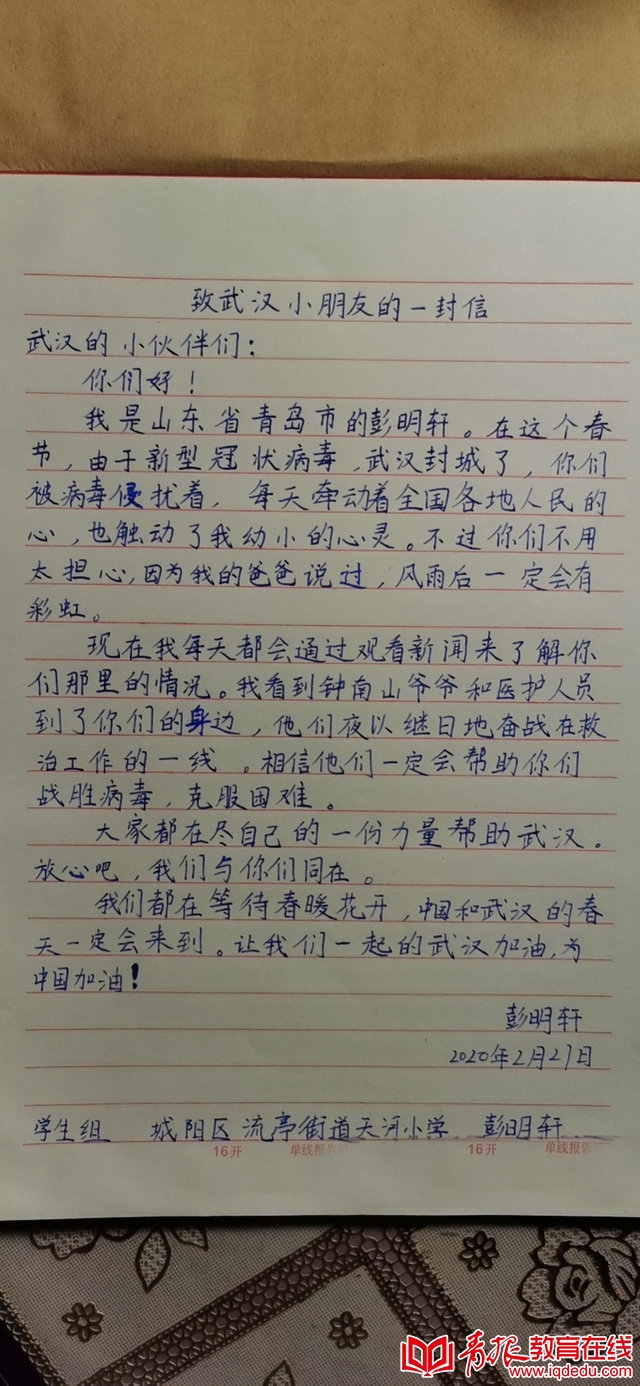 致武汉小朋友的一封信
武汉的小伙伴们：
你们好！
我是山东省青岛市的彭明轩。在这个春
节，由于新型冠状病毒，武汉封城了，你们
被病毒侵扰着，每天牵动着全国各地人民的
心，也触动了我幼小的心灵。不过你们不用
太担心，因为我的爸爸说过，风雨后一定会有
彩虹。
现在我每天都会通过观看新闻来了解你
们那里的情况。我看到钟南山爷爷和医护人员
到了你们的身边，他们夜以继日地奋战在救
治工作的一线。相信他们一定会帮助你们
战胜病毒，克服困难。
大家都在尽自己的一份力量帮助武汉。
放心吧，我们与你们同在。
我们都在等待春暖花开，中国和武汉的春
天一定会来到。让我们一起的武汉加油，为
中国加油！
彭明轩
2020年2月27日
学生组 城阳区流亭街道天河小学 彭明轩
16开 单线报告 16开 单线报告
青报教育在线
www.iqdedu.com